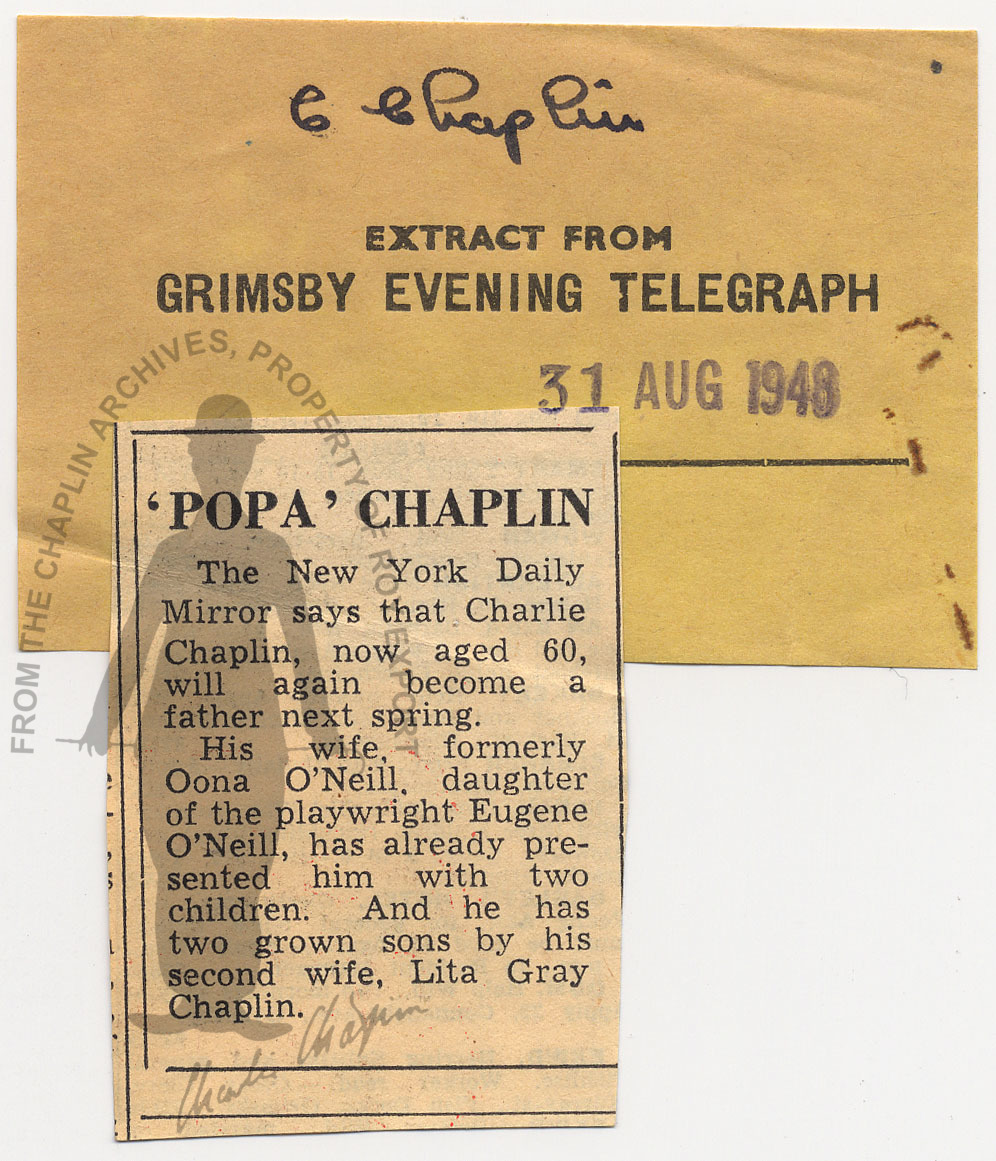 C Chaplin
EXTRACT FROM
GRIMSBY EVENING TELEGRAPH
31 AUG 1948
FROM THE CHAPLIN ARCHIVES, PROPERTY OF ROY EXPORT
'POPA' CHAPLIN
The New York Daily
Mirror says that Charlie
Chaplin, now aged 60,
will again become a
father next spring.
His wife, formerly
Oona O'Neill, daughter
of the playwright Eugene
O'Neill, has already pre-
sented him with two
children. And he has
two grown sons by his
second wife, Lita Gray
Chaplin.
Charlie Chaplin